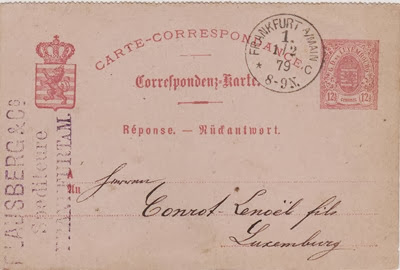 CARTE-CORRESPONDANCE.
FRANKFURT A/MAIN
1.
12
79
8-9N.
* C
Correspondenz-Karte.
12½ 12½
Réponse. — Rückantwort.
LAUSBERG & Co
Spediteure
FRANKFURT A/M.
A
An
Herren
Conrot-Lenoël fils
Luxemburg